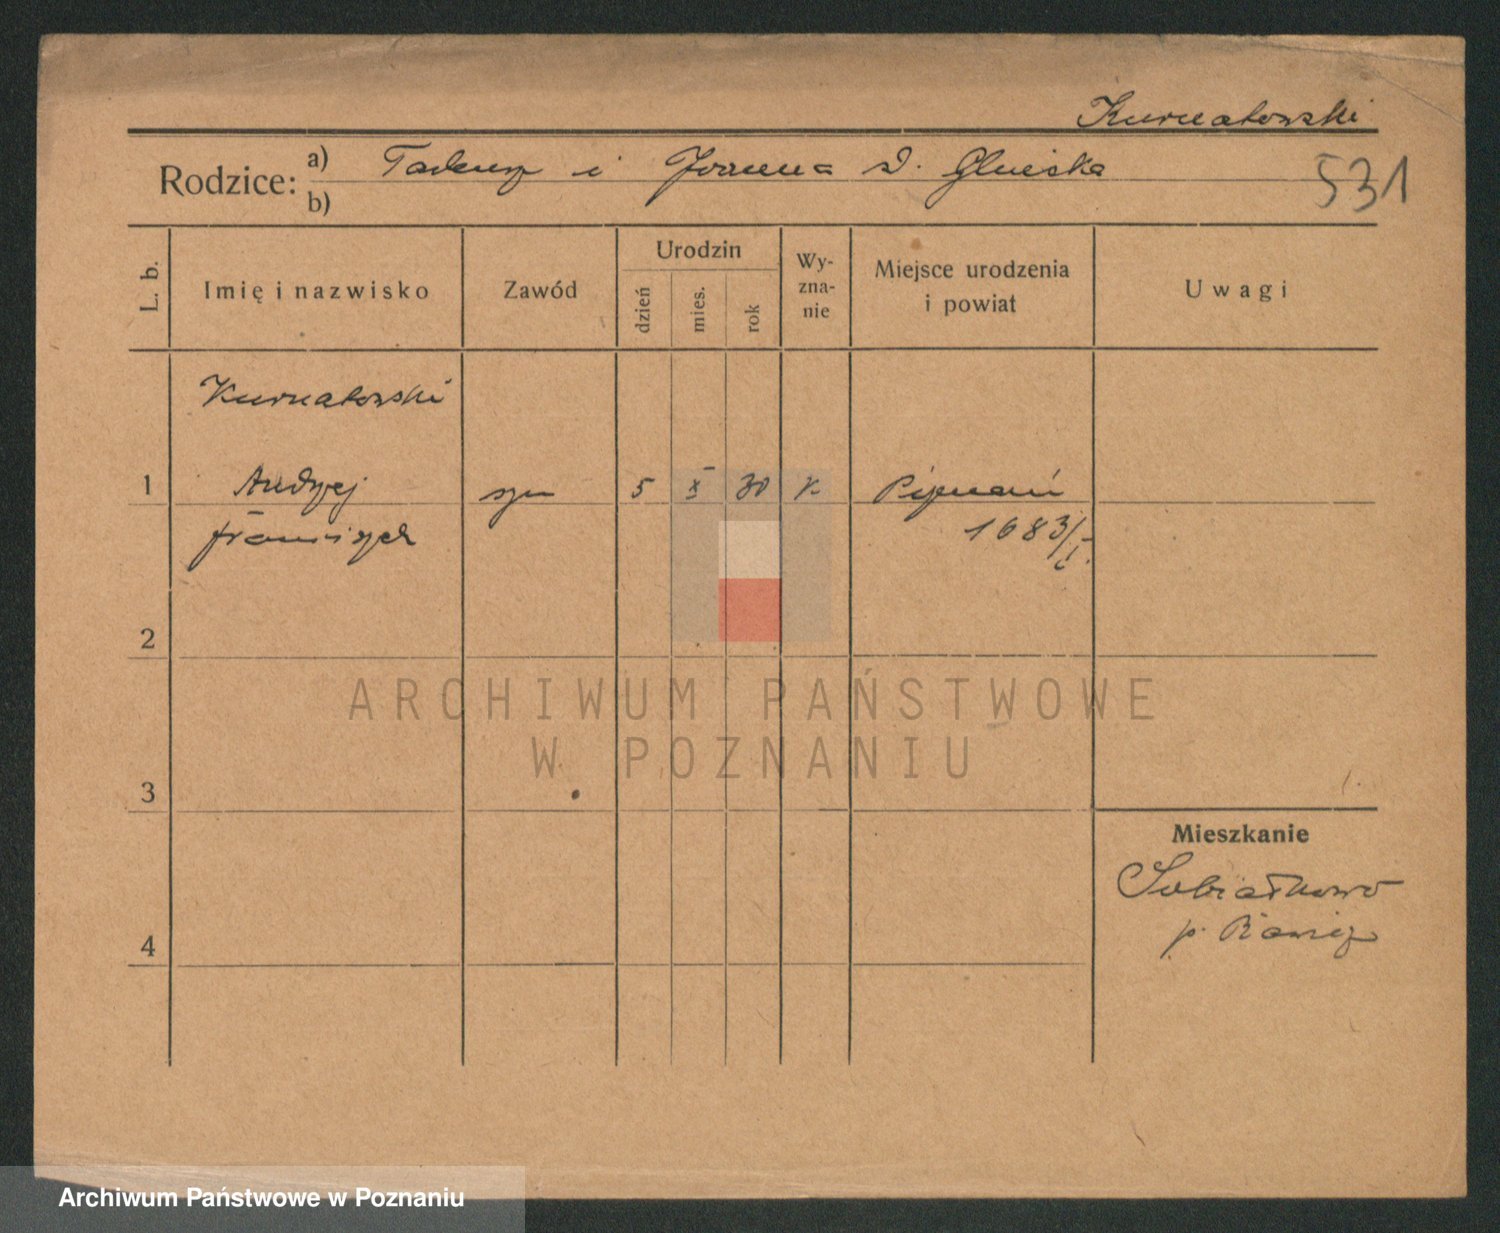 Kurnatowski
Rodzice: a) Tadeusz i Joanna d. Gliwska
b)
531
L. b.
Imię i nazwisko
Zawód
Urodzin
dzień
mies.
rok
Wy-
zna-
nie
Miejsce urodzenia
i powiat
Uwagi
Kurnatowski
1 Andrzej syn 5 X 30 k. Poznań
Franciszek 1683/I.
2
3
4
Mieszkanie
Sobiałkowo
p. Rawicz
ARCHIWUM PAŃSTWOWE
W POZNANIU
Archiwum Państwowe w Poznaniu